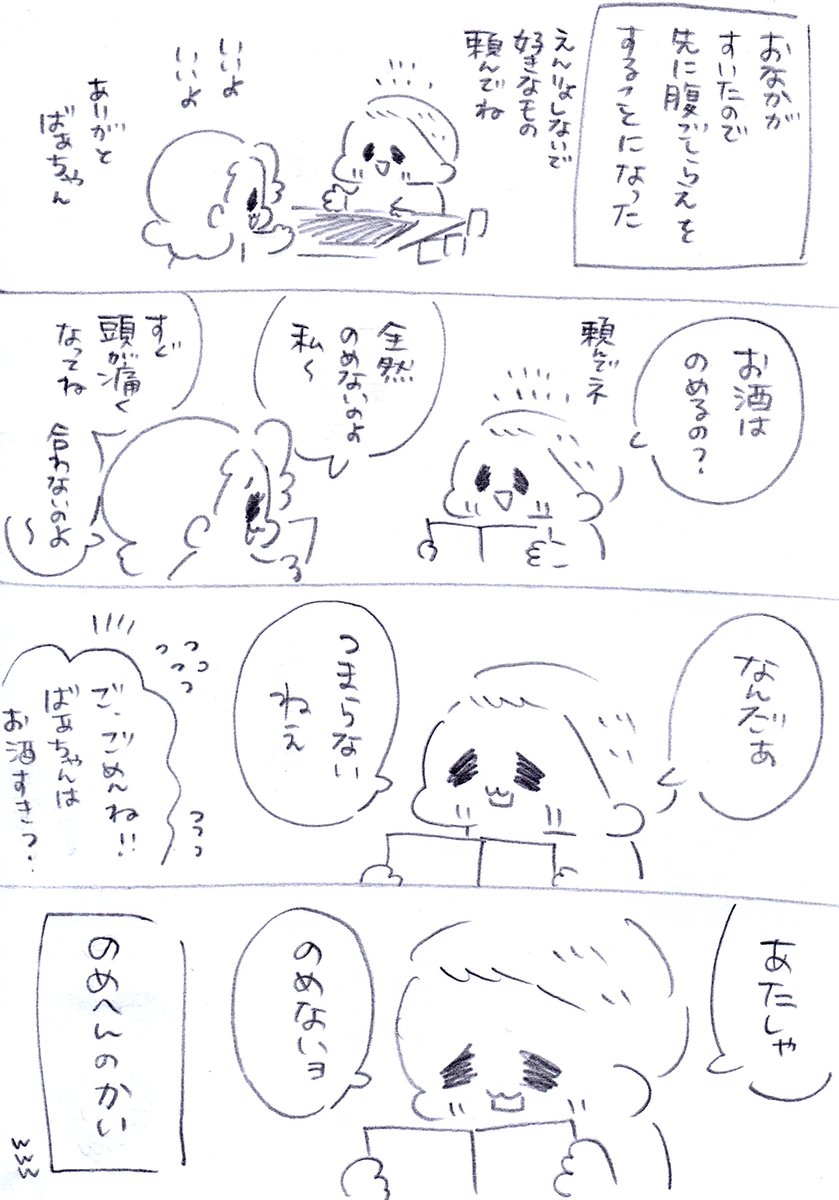 おなかが
すいたので
先に腹ごしらえを
することになった
えんりょしないで
好きなもの
頼んでね
いいよ
いいよ
ありがと
ばあちゃん
お酒は
のめるの?
頼んでネ
全然
のめないのよ
私〜
すぐ
頭が痛く
なってね
合わないのよ
〜
なんだあ
つまらない
ねえ
ご、ごめんね!!
ばあちゃんは
お酒すき?
あたしゃ
のめないヨ
のめへんのかい
www